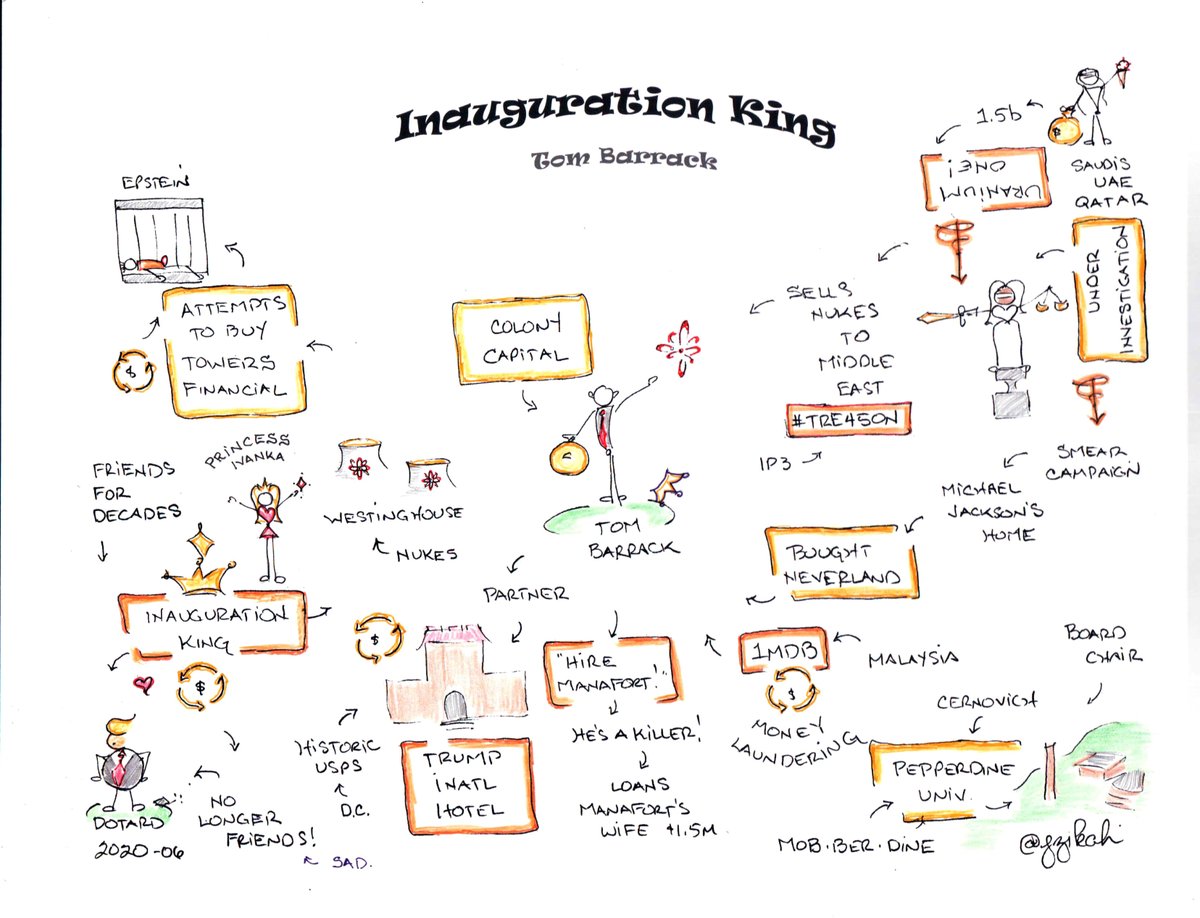 Inauguration King
Tom Barrack
EPSTEIN
ATTEMPTS
TO BUY
TOWERS
FINANCIAL
$
COLONY
CAPITAL
1.5b
$
SAUDIS
UAE
QATAR
URANIUM
ONE!
UNDER
INNESTIGATION
SELLS
NUKES
TO
MIDDLE
EAST
#TRE45ON
IP3
SMEAR
CAMPAIGN
MICHAEL
JACKSON'S
HOME
BOUGHT
NEVERLAND
FRIENDS
FOR
DECADES
PRINCESS
IVANKA
WESTINGHOUSE
NUKES
TOM
BARRACK
INAUGURATION
KING
$
PARTNER
$
"HIRE
MANAFORT!"
HE'S A KILLER!
LOANS
MANAFORT'S
WIFE $1.5M
1MDB
$
MALAYSIA
MONEY
LAUNDERING
BOARD
CHAIR
CERNOVICH
PEPPERDINE
UNIV.
MOB·BER·DINE
HISTORIC
USPS
D.C.
TRUMP
INATL
HOTEL
DOTARD
2020-06
NO
LONGER
FRIENDS!
SAD.